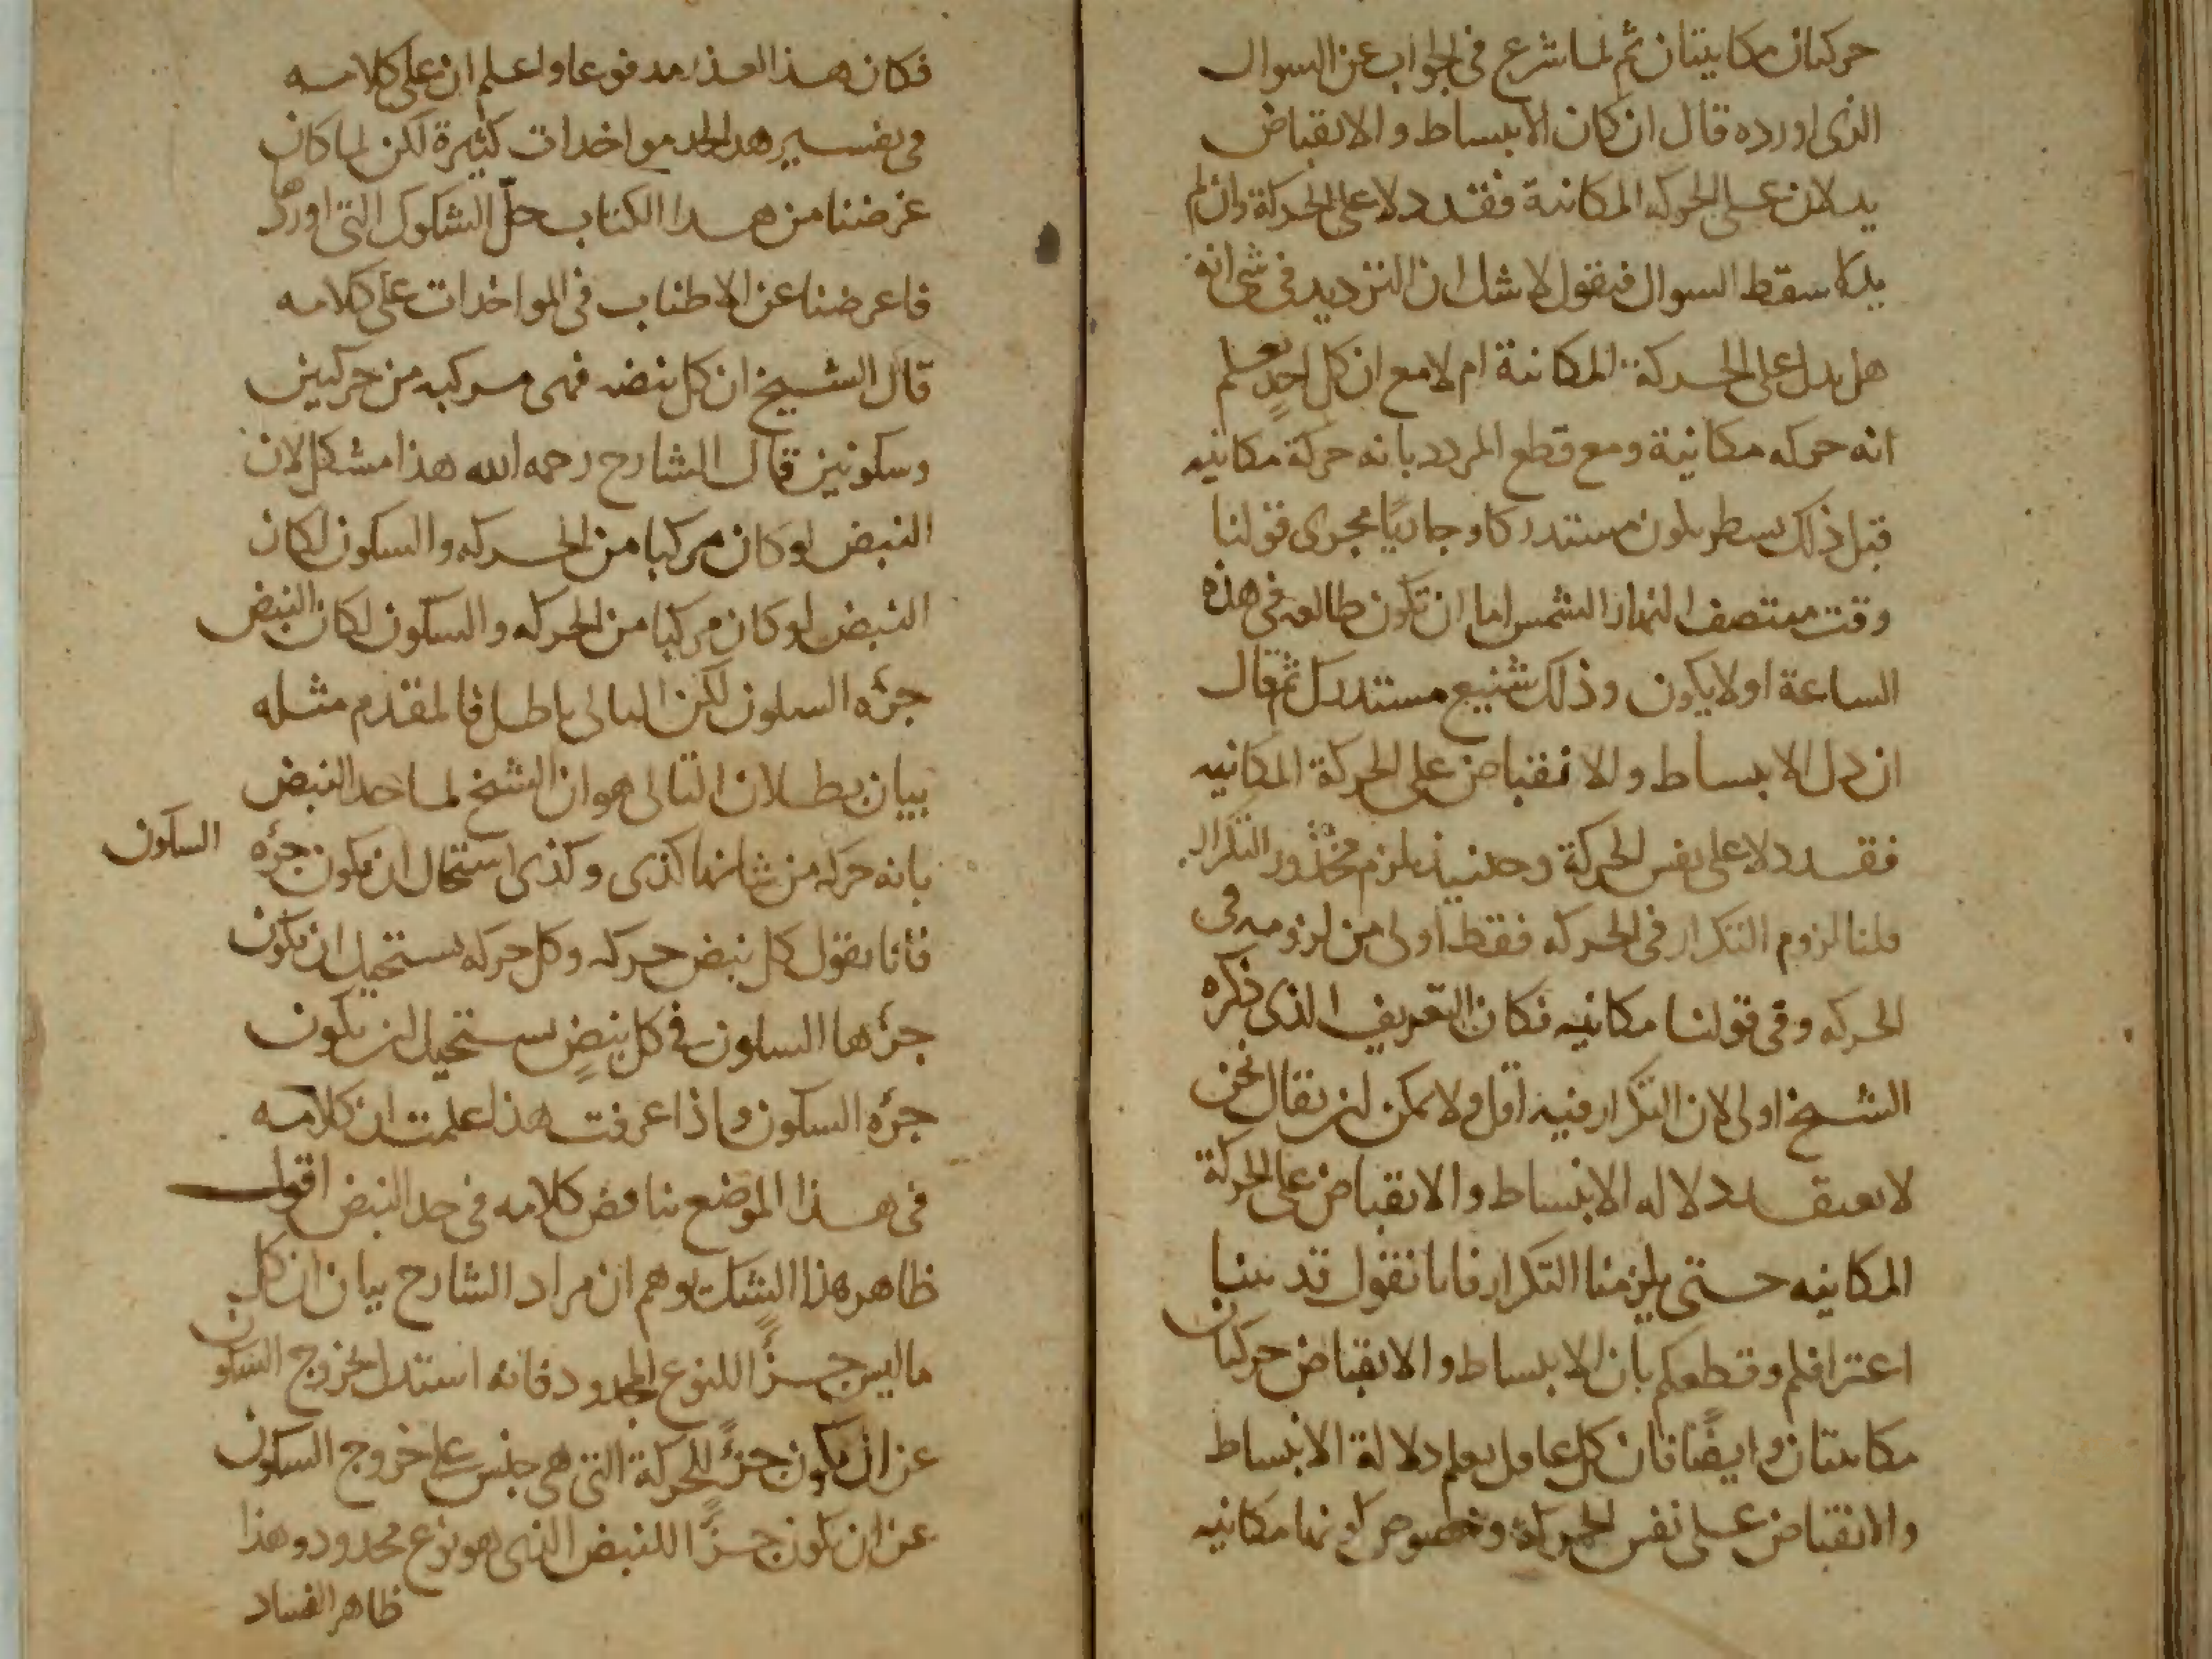 حركتان مكانيتان ثم لما شرع فى الجواب عن السوال
الذى اورده قال ان كان الانبساط والانقباض
يدلان على الحركه المكانية فقد دلا على الحركة وان لم
يدلا سقط السوال فنقول لا شك ان الترديد فى شى انه
هل يدل على الحركة المكانية ام لا مع ان كل احدٍ يعلم
انه حركه مكانية ومع قطع المردد بانه حركة مكانيه
قبل ذلك بسطر يكون مستدركا وجاريًا مجرى قولنا
وقت منتصف النهار الشمس اما ان تكون طالعه فى هذه
الساعة او لا يكون وذلك شنيع مستدرك ثم قال
ان دل الانبساط والانقباض على الحركة المكانيه
فقد دلا على نفس الحركة وحينيذ يلزم محذور التكرار
قلنا لزوم التكرار فى الحركه فقط اولى من لزومه فى
الحركه وفى قولنا مكانيه فكان التعريف الذى ذكره
الشيخ اولى لان التكرار فيه اقل ولا يمكن ان يقال نحن
لا نعتقد دلاله الانبساط والانقباض على الحركة
المكانيه حتى يلزمنا التكرار فانا نقول قد بينا
اعترافكم وقطعكم بان الانبساط والانقباض حركتان
مكانيتان وايضًا فان كل عاقل يعلم دلالة الانبساط
والانقباض على نفس الحركة وخصوص كونها مكانيه
فكان هذا العذر مدفوعا واعلم ان على كلامه
فى تفسير هذا الحد مواخدات كثيرة لكن لما كان
غرضنا من هذا الكتاب حلّ الشكوك التى اوردها
فاعرضنا عن الاطناب فى المواخدات على كلامه
قال الشيخ ان كل نبضه فهى مركبه من حركتين
وسكونين قال الشارح رحمه الله هذا مشكل لان
النبض لو كان مركبا من الحركه والسكون لكان
النبض لو كان مركبا من الحركه والسكون لكان النبض
جزءه السكون لكن التالى باطل فالمقدم مثله
بيان بطلان التالى هو ان الشيخ لما حد النبض
بانه حركه من شانها كذى وكذى استحال ان يكون جزءه السكون
فانا نقول كل نبض حركه وكل حركه يستحيل ان يكون
جزءها السكون فى كل نبضٍ يستحيل ان يكون
جزءه السكون واذا عرفت هذا علمت ان كلامه
فى هذا الموضع يناقض كلامه فى حد النبض اقول
ظاهر هذا الشك يوهم ان مراد الشارح بيان ان كل
ما ليس جزءًا للنوع المحدود فانه استدل بخروج السكون
عن ان يكون جزءًا للحركة التى هى جنس على خروج السكون
عن ان يكون جزءًا للنبض الذى هو نوع محدود وهذا
ظاهر الفساد